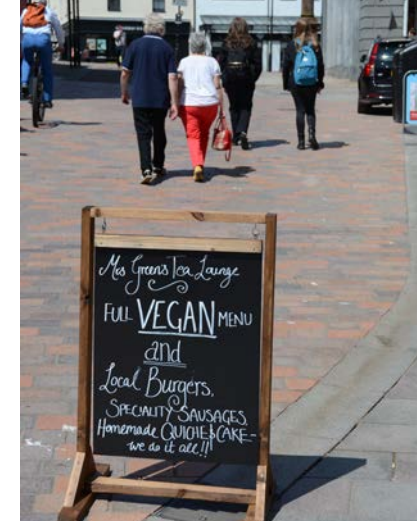 Mrs Greens Tea Lounge
FULL VEGAN MENU
and
Local Burgers,
SPECIALITY SAUSAGES,
Homemade QUICHE & CAKE -
we do it all!!